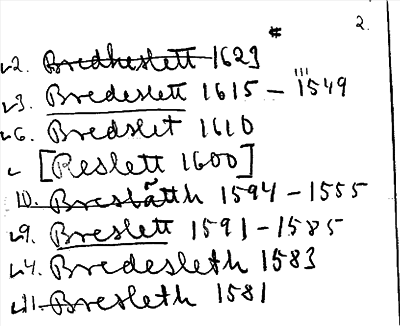 2.
2. Bredheslett 1623
3. Bredeslett 1615 - 1549
6. Bredslet 1610
[Reslett 1600]
10. Bresbätth 1594 - 1555
9. Breslett 1591 - 1585
4. Bredesleth 1583
11. Bresleth 1581